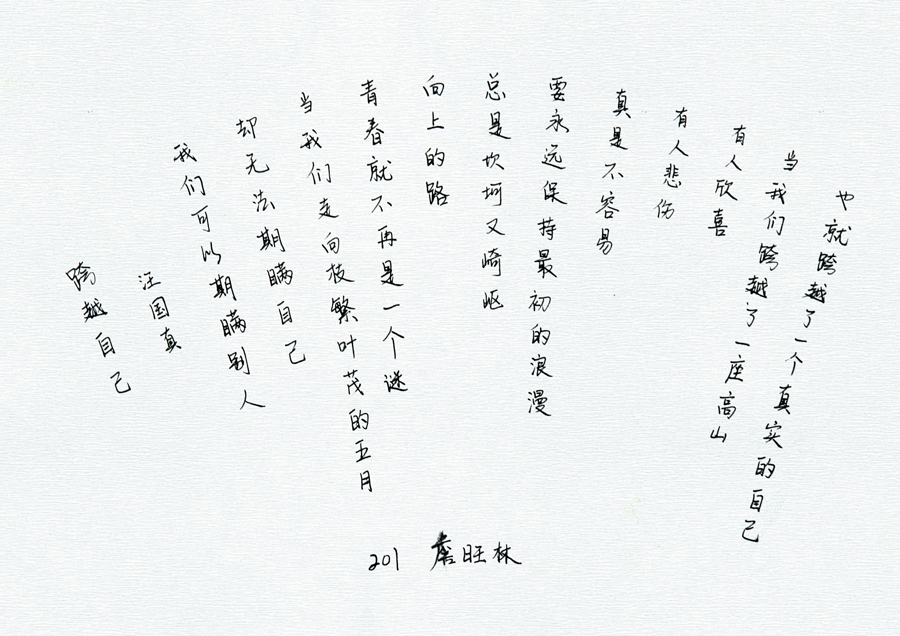 跨越自己
汪国真
我们可以期瞒别人
却无法期瞒自己
当我们走向枝繁叶茂的五月
青春就不再是一个谜
向上的路
总是坎坷又崎岖
要永远保持最初的浪漫
真是不容易
有人悲伤
有人欣喜
当我们跨越了一座高山
也就跨越了一个真实的自己
201 詹旺林